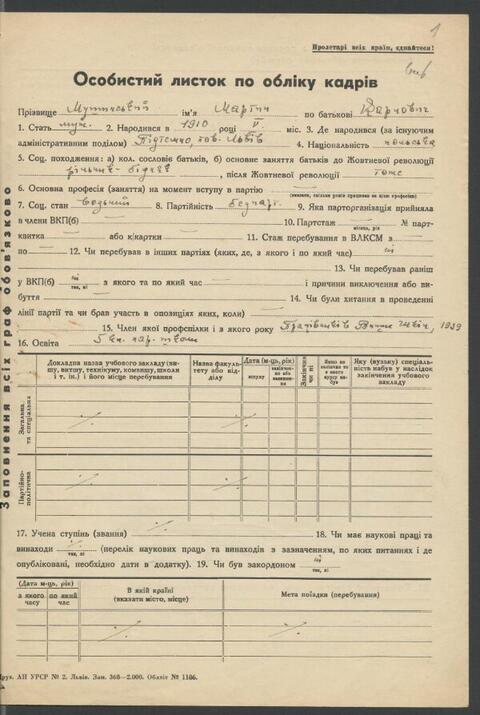 1
Пролетарі всіх країн, єднайтеся!
Особистий листок по обліку кадрів
Прізвище ім'я Мартин по батькові
1. Стать муж. 2. Народився в 1910 році V міс. 3. Де народився (за існуючим
адміністративним поділом) Підтемно, пов. Львів 4. Національність польська
5. Соц. походження: а) кол. сословіє батьків, б) основне заняття батьків до Жовтневої революції
рільник-бідняк, після Жовтневої революції тоже
6. Основна професія (заняття) на момент вступу в партію
(вкажіть, скільки років працював за цією професією)
7. Соц. стан 8. Партійність безпарт. 9. Яка парторганізація прийняла
в члени ВКП(б) 10. Партстаж № парт-
місяць, рік
квитка або к/картки 11. Стаж перебування в ВЛКСМ з
по 12. Чи перебував в інших партіях (яких, де, з якого і по який час) ні
13. Чи перебував раніш
у ВКП(б) ні з якого та по який час і причини виключення або ви-
так, ні
буття 14. Чи були хитання в проведенні
лінії партії та чи брав участь в опозиціях яких, коли)
15. Член якої профспілки і з якого року 1939
16. Освіта 5 кл. нар. школи
Заповнення всіх граф обов'язково
Докладна назва учбового закладу (ви-
шу, втишу, технікуму, комвишу, школи
і т. ін.) і його місце перебування
Назва факуль-
тету або від-
ділу
Дата (м-ць, рік)
вступу
закінчен-
ня або
залишен-
ня
Закінчив
чи ні
Якщо не
закінчив то
з якого
курсу ви-
був
Яку (вузьку) спеціаль-
ність набув у наслідок
закінчення учбового
закладу
Загальна
та спеціальна
Партійно-
політична
17. Учена ступінь (звання) 18. Чи має наукові праці та
винаходи (перелік наукових праць та винаходів з зазначенням, по яких питаннях і де
так, ні
опубліковані, необхідно дати в додатку). 19. Чи був закордоном ні
так, ні
(Дата м-ць, рік)
з якого
часу
по який
час
В якій країні
(вказати місто, місце)
Мета поїздки (перебування)
Друк. АН УРСР № 2. Львів. Зам. 368—2.000. Обліт № 1186.